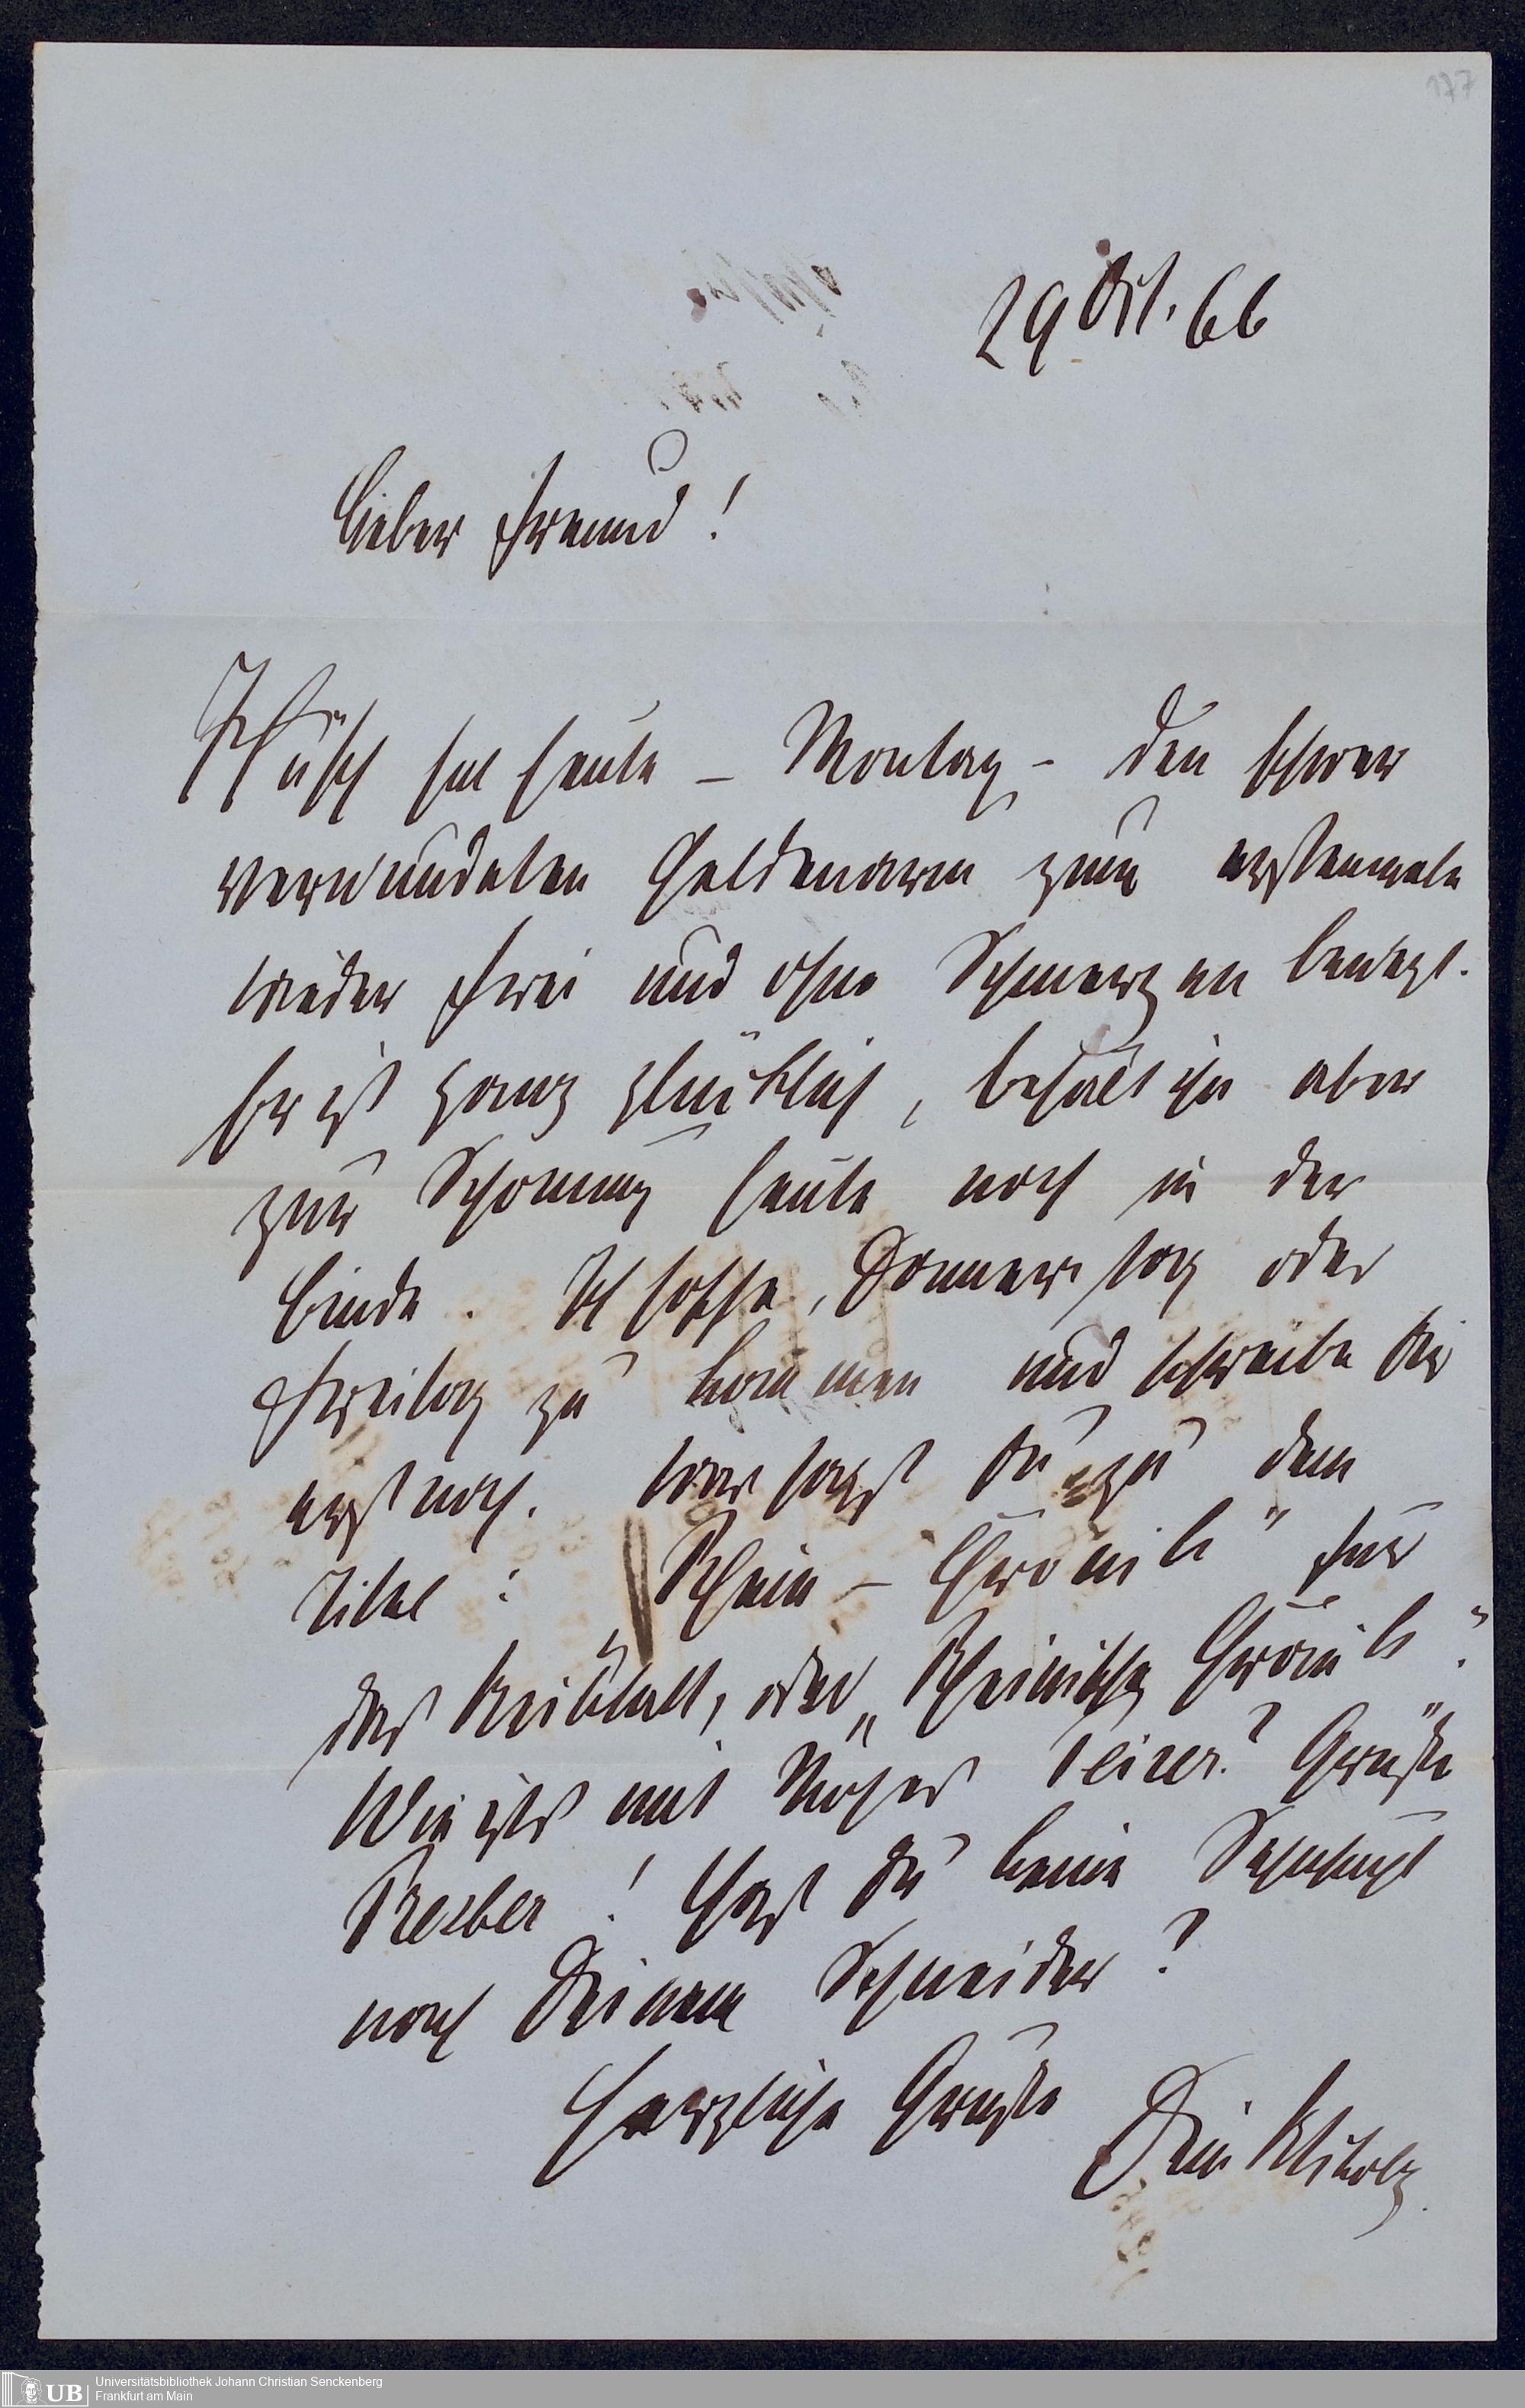 177
29 Okt. 66
Lieber Freund!
hat heute – Montag – den schwer
verwundeten Heldenarm zum erstenmale
wieder frei und ohne Schmerzen bewegt.
Er ist ganz glücklich, behält ihn aber
zur Schonung heute noch in der
Binde. Ich hoffe, Donnerstag oder
Freitag zu kommen und schreibe Dir
erst noch. Was sagst Du zu dem
Titel: „Rhein-Chronik" für
das Beiblatt, oder „Rheinische Chronik".
Wie ists mit Moses Leiser? Grüße
Reeber! Hast Du keine Sehnsucht
nach Deinem Schneider?
Herzliche Grüße
Dein
UB
Universitätsbibliothek Johann Christian Senckenberg
Frankfurt am Main